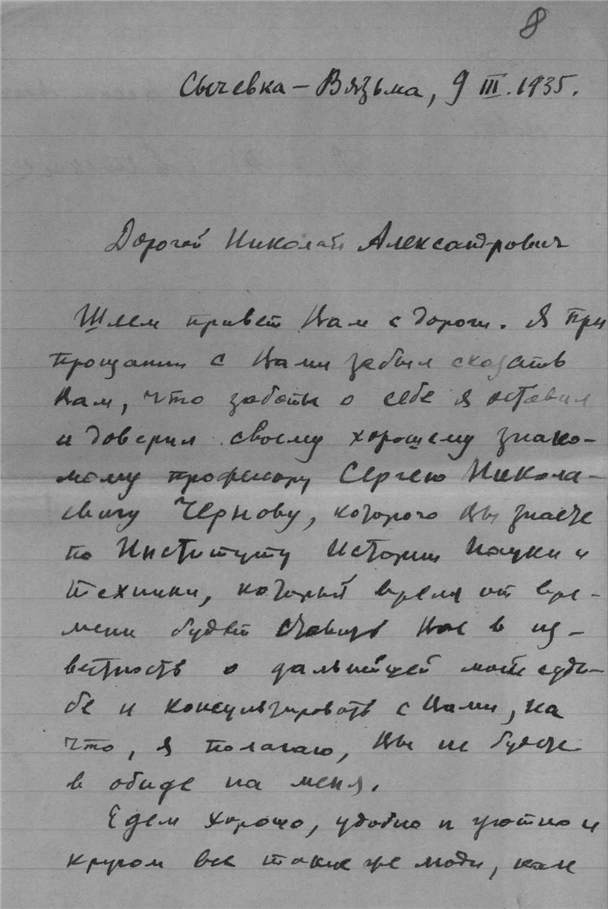 8
Сычевка – Вязьма, 9 III. 1935.
Дорогой Николай Александрович
Шлем привет Вам с дороги. Я при
прощании с Вами забыл сказать
Вам, что заботы о себе я оставил
и доверил своему хорошему знако-
мому профессору Сергею Никола-
евичу Чернову, которого Вы знаете
по Институту Истории Науки и
Техники, который время от вре-
мени будет ставить Вас в из-
вестность о дальнейшей моей судь-
бе и консультировать с Вами, на
что, я полагаю, Вы не будете
в обиде на меня.
Едем хорошо, удобно и уютно и
кругом все такие же люди, как